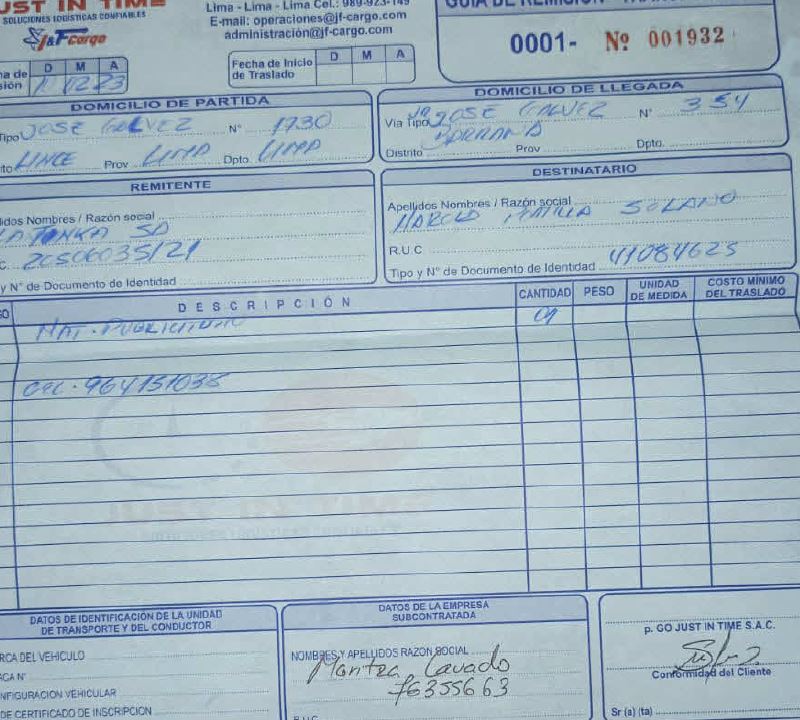 UST IN TIME
SOLUCIONES LOGISTICAS CONFIABLES
J&F Cargo
Lima - Lima - Lima Cel.: 989-923-149
E-mail: operaciones@jf-cargo.com
administración@jf-cargo.com
GUIA DE REMISION - TRAN
0001- Nº 001932
D M A
11 12 23
Fecha de Inicio de Traslado D M A
DOMICILIO DE PARTIDA
Tipo JOSE GALVEZ N° 1730
LINCE Prov LIMA Dpto. LIMA
DOMICILIO DE LLEGADA
Via Tipo JR JOSE GALVEZ N° 354
Distrito BARRANO Prov Dpto.
REMITENTE
lidos Nombres / Razón social
LA TONKA SA
C. 20506035121
y N° de Documento de Identidad
DESTINATARIO
Apellidos Nombres / Razón social
HAROLD SOLANO
R.U.C
Tipo y N° de Documento de Identidad 41084625
DESCRIPCIÓN CANTIDAD PESO UNIDAD DE MEDIDA COSTO MÍNIMO DEL TRASLADO
MAT. PUBLICITARIO 01
CEL. 964151035
DATOS DE IDENTIFICACIÓN DE LA UNIDAD
DE TRANSPORTE Y DEL CONDUCTOR
RCA DEL VEHICULO
ACA N°
NFIGURACION VEHICULAR
DE CERTIFICADO DE INSCRIPCION
DATOS DE LA EMPRESA
SUBCONTRATADA
NOMBRES Y APELLIDOS RAZON SOCIAL
Maritza Lavado
76355663
R.U.C.
p. GO JUST IN TIME S.A.C.
Conformidad del Cliente
Sr (a) (ta)